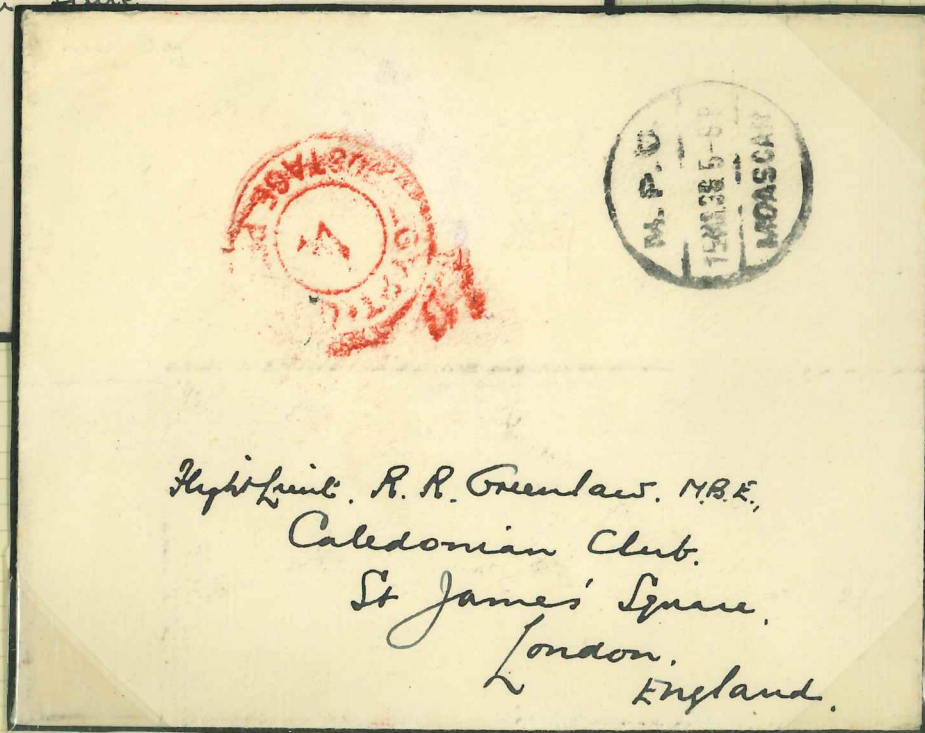 POSTAGE P
EGYPT
M.P.O
MOASCAR
Flight Lieut. R. R. Greenlaw. M.B.E.,
Caledonian Club.
St James' Square,
London,
England.